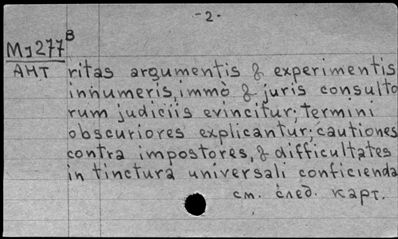 - 2 -
МJ277ᴮ
АНТ
ritas argumentis & experimentis
innumeris, immo & juris consulto
rum judiciis evincitur; termini
obscuriores explicantur; cautiones
contra impostores, & difficultates
in tinctura universali conficienda
см. след. карт.